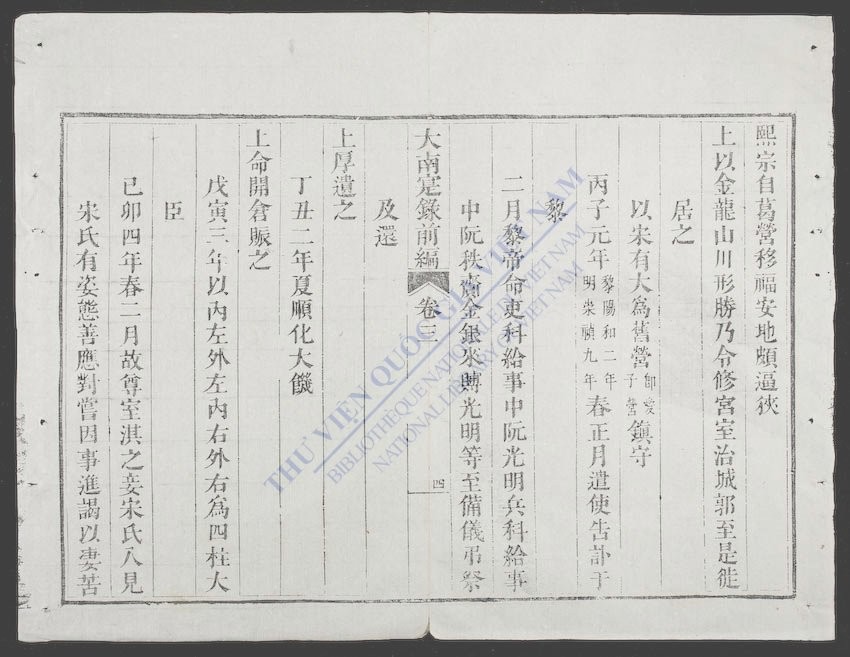 熙宗自葛營移福安地頗逼狹
上以金龍山川形勝乃令修宮室治城郭至是徙
居之
以宋有大為舊營即愛子營鎮守
丙子元年黎陽和二年明崇禎九年春正月遣使告訃于
黎
二月黎帝命吏科給事中阮光明兵科給事
中阮秩齎金銀來賻光明等至備儀弔祭
大南寔錄前編 卷三 四
及還
上厚遺之
丁丑二年夏順化大饑
上命開倉賑之
戊寅三年以內左外左內右外右為四柱大
臣
己卯四年春二月故尊室淇之妾宋氏入見
宋氏有姿態善應對嘗因事進謁以凄苦
THƯ VIỆN QUỐC GIA VIỆT NAM
BIBLIOTHÈQUE NATIONALE DU VIETNAM
NATIONAL LIBRARY OF VIETNAM